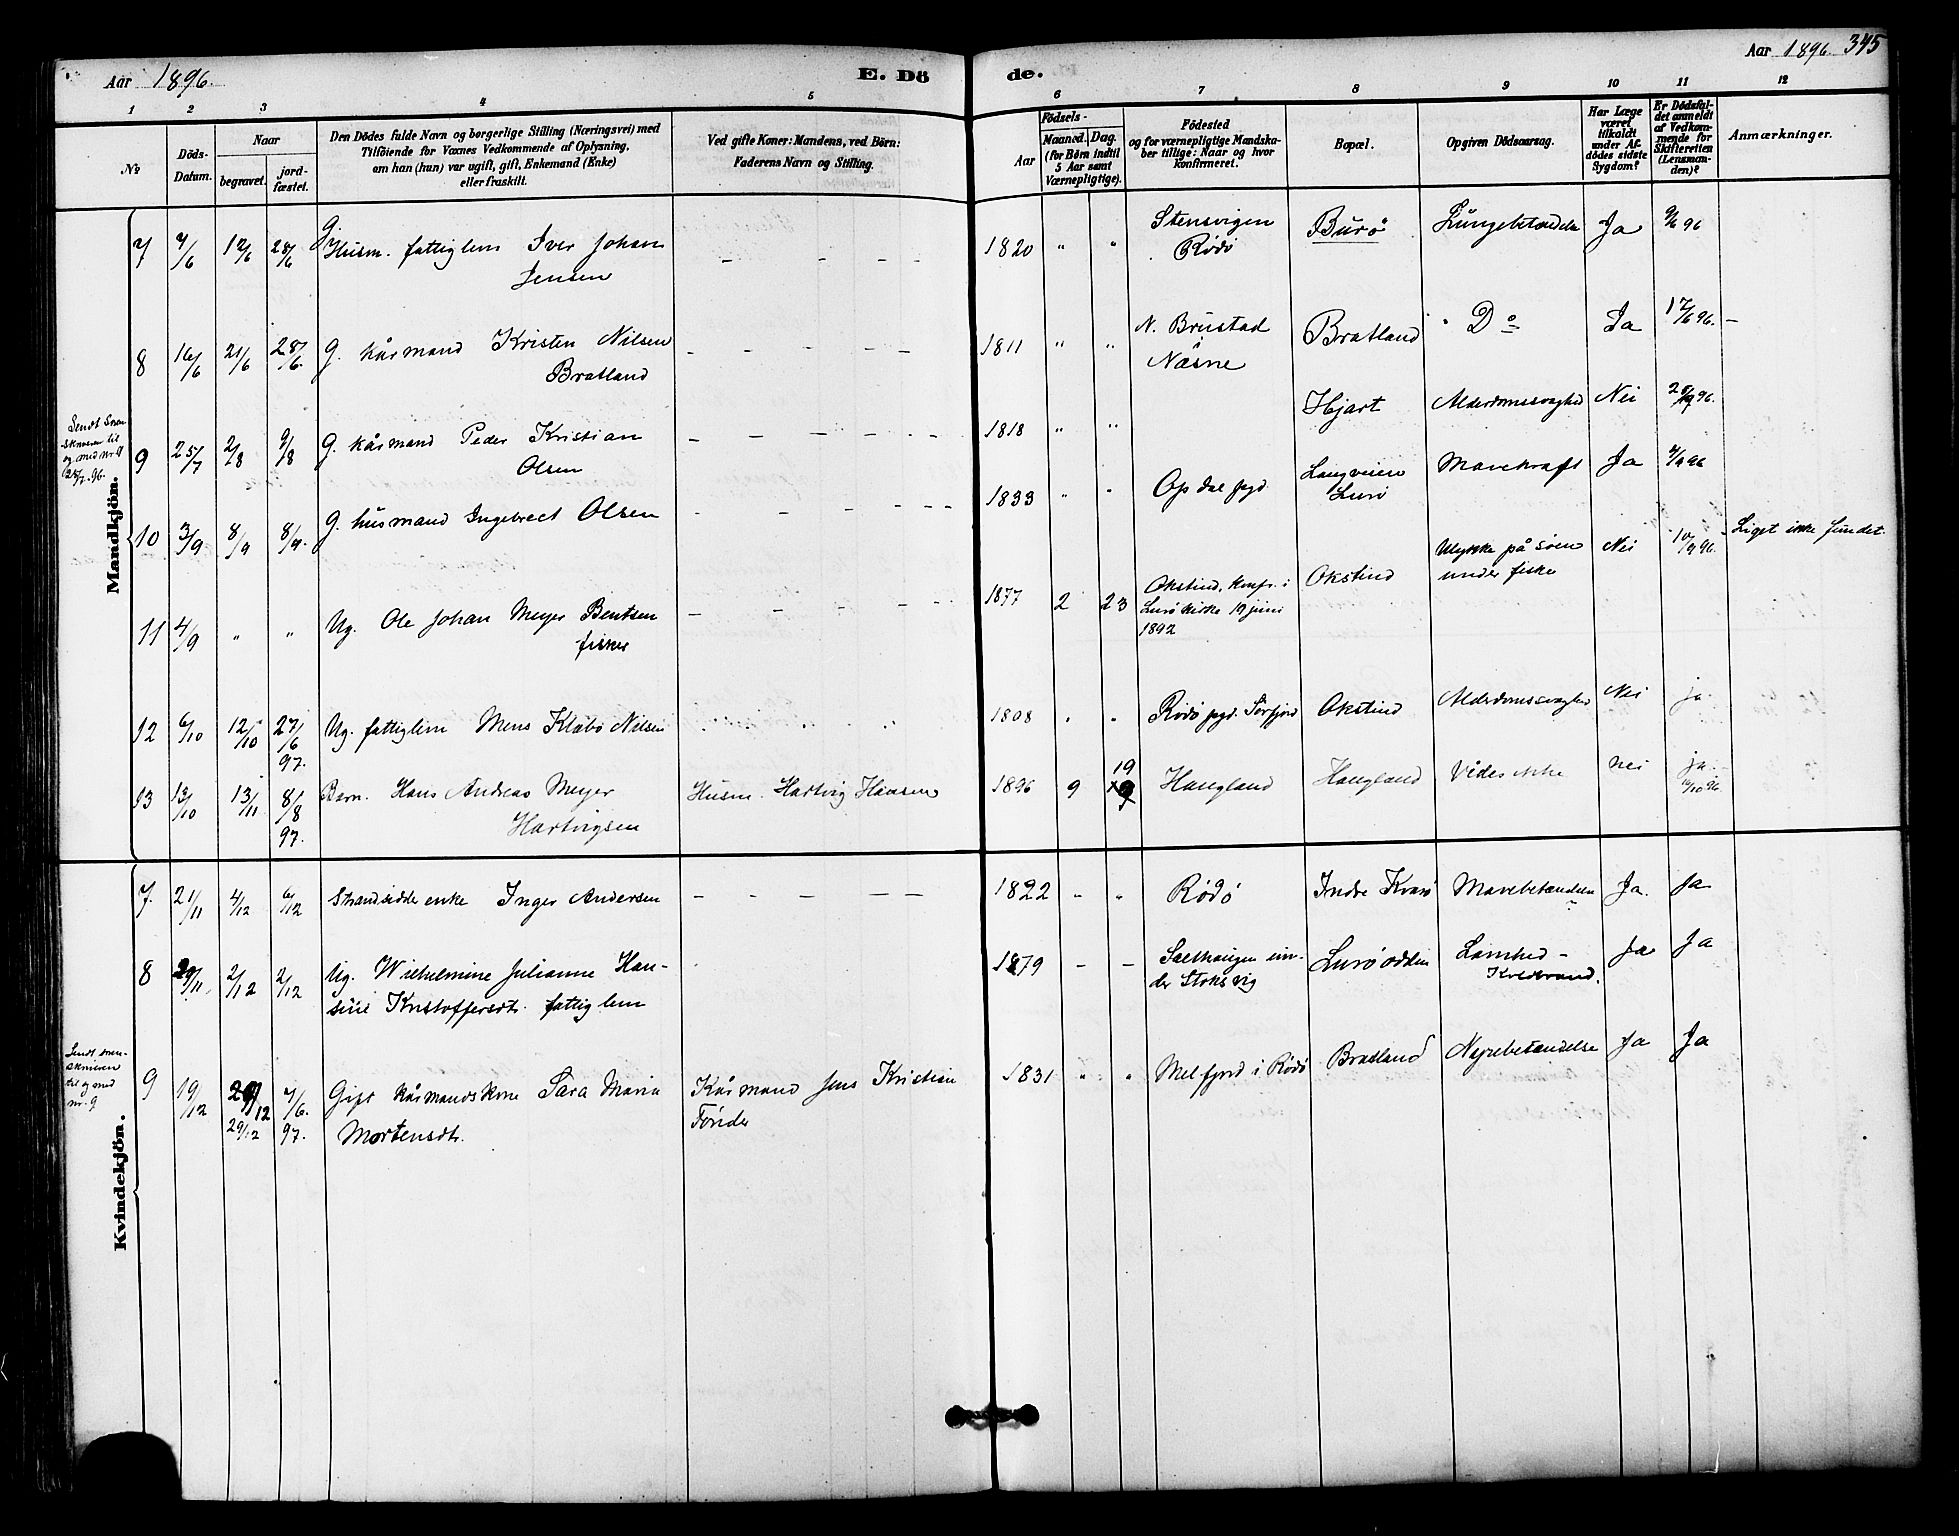 Aar 1896.
E. Dö
de.
Aar 1896. 345
1 2 3 4 5 6 7 8 9 10 11 12
No
Döds-
Datum.
Naar
begravet.
jord-
fæstet.
Den Dödes fulde Navn og borgerlige Stilling (Næringsvei) med
Tilföiende for Voxnes Vedkommende af Oplysning,
om han (hun) var ugift, gift, Enkemand (Enke)
eller fraskilt.
Ved gifte Koner: Mandens, ved Börn:
Faderens Navn og Stilling.
Födsels-
Aar
Maaned. Dag.
(for Börn indtil
5 Aar samt
Værnepligtige).
Födested
og for værnepligtige Mandska-
ber tillige: Naar og hvor
konfirmeret.
Bopæl.
Opgiven Dödsaarsag.
Har Læge
været
tilkaldt
under Af-
dödes sidste
Sygdom?
Er Dödsfal-
det anmeldt
af Vedkom-
mende for
Skifteretten
(Lensman-
den)?
Anmærkninger.
Mandkjön.
7 7/6 12/6 28/6 G. Husm. fattiglem Iver Johan
Jensen
1820 " " Stensvigen
Rödö
Burö Lungebetændelse Ja 9/6 96
8 16/6 21/6 28/6. G. kårmand Kristen Nilsen
Bratland
1811 " " N. Brustad
Næsne
Bratland Do Ja 17/6 96. –
Sendt Soren-
skriveren til
og med nr 9
25/7. 96.
9 25/7 2/8 9/8 G. kårmand Peder Kristian
Olsen
1818 " " Hjart Alderdomssvaghed Nei 96.
10 3/9 8/9 8/9. G. husmand Ingebrect Olsen
1833 " " Opdal pgd Langveien
Lurö
Mavekræft Ja 7/9 96
11 4/9 " " Ug. Ole Johan Meyer Bentsen
fisker
1877 2 23 Okstind, Konf. i
Lurö kirke 19 juni
1892
Okstind Ulykke på söen
under fiske
Nei 10/9 96. Liget ikke fundet.
12 6/10 12/10 27/6
97.
Ug. fattiglem Mons Klæbo Nilsen
1808 " " Rödö pgd. Sörfjord Okstind Alderdomssvaghed Nei ja.
13 13/10 13/11 8/8
97.
Barn. Hans Andreas Meyer
Hartvigsen
Husm. Hartvig Hansen
1896 9 19 Haugland Haugland Vides ikke nei ja.
Kvindekjön.
7. 21/11 4/12 6/12 Strandsidderenke Inger Andersen
1822 – " Rödö Indre Kvarö Mavebetændelse Ja. Ja
8 29/11. 2/12 2/12 Ug. Wilhelmine Julianne Han-
sine Kristoffersdt. fattiglem
1879 – – Selthaugen un-
der Stoksvig
Lurö odden Lamhed –
Koldbrand.
Ja Ja
Sendt soren-
skriveren
til og med
nr. 9
9 19/12 29/12
29/12
7/6.
97.
Gift kårmandskone Sara Maria
Mortensdt.
Kårmand Jens Kristian
1831 " " Melfjord i Rödö Bratland Nyrebetændelse Ja Ja